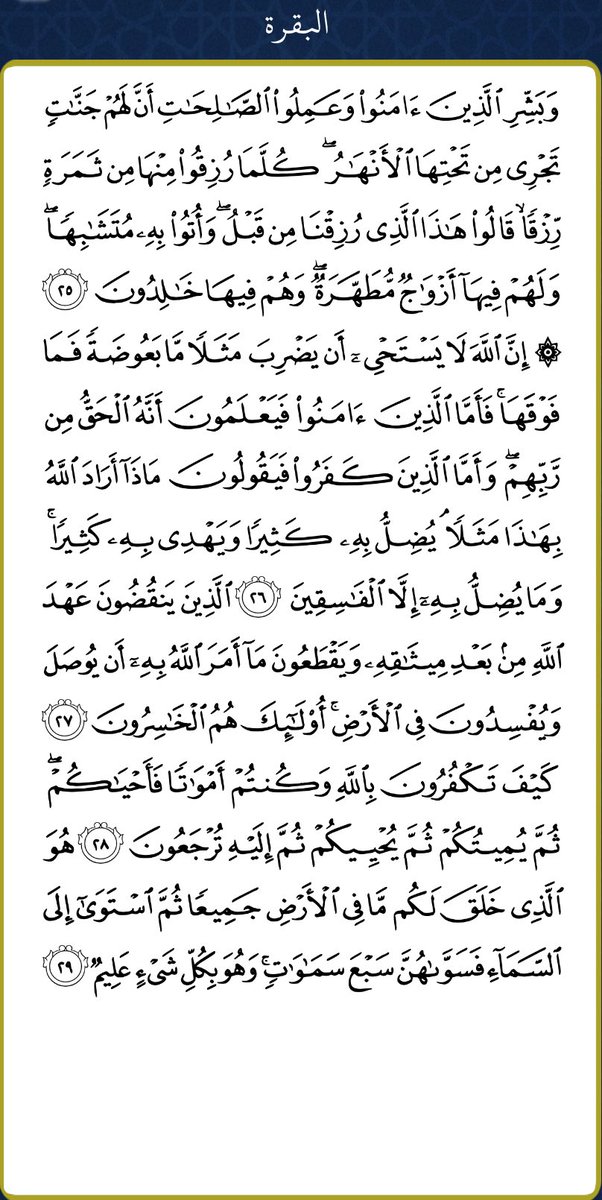 البقرة
وَبَشِّرِ ٱلَّذِينَ ءَامَنُوا۟ وَعَمِلُوا۟ ٱلصَّـٰلِحَـٰتِ أَنَّ لَهُمْ جَنَّـٰتٍ
تَجْرِى مِن تَحْتِهَا ٱلْأَنْهَـٰرُ ۖ كُلَّمَا رُزِقُوا۟ مِنْهَا مِن ثَمَرَةٍ
رِّزْقًا ۙ قَالُوا۟ هَـٰذَا ٱلَّذِى رُزِقْنَا مِن قَبْلُ ۖ وَأُتُوا۟ بِهِۦ مُتَشَـٰبِهًا ۖ
وَلَهُمْ فِيهَآ أَزْوَٰجٌ مُّطَهَّرَةٌ ۖ وَهُمْ فِيهَا خَـٰلِدُونَ ٢٥
۞ إِنَّ ٱللَّهَ لَا يَسْتَحْىِۦٓ أَن يَضْرِبَ مَثَلًا مَّا بَعُوضَةً فَمَا
فَوْقَهَا ۚ فَأَمَّا ٱلَّذِينَ ءَامَنُوا۟ فَيَعْلَمُونَ أَنَّهُ ٱلْحَقُّ مِن
رَّبِّهِمْ ۖ وَأَمَّا ٱلَّذِينَ كَفَرُوا۟ فَيَقُولُونَ مَاذَآ أَرَادَ ٱللَّهُ
بِهَـٰذَا مَثَلًا ۘ يُضِلُّ بِهِۦ كَثِيرًا وَيَهْدِى بِهِۦ كَثِيرًا ۚ
وَمَا يُضِلُّ بِهِۦٓ إِلَّا ٱلْفَـٰسِقِينَ ٢٦ ٱلَّذِينَ يَنقُضُونَ عَهْدَ
ٱللَّهِ مِنۢ بَعْدِ مِيثَـٰقِهِۦ وَيَقْطَعُونَ مَآ أَمَرَ ٱللَّهُ بِهِۦٓ أَن يُوصَلَ
وَيُفْسِدُونَ فِى ٱلْأَرْضِ ۚ أُو۟لَـٰٓئِكَ هُمُ ٱلْخَـٰسِرُونَ ٢٧
كَيْفَ تَكْفُرُونَ بِٱللَّهِ وَكُنتُمْ أَمْوَٰتًا فَأَحْيَـٰكُمْ ۖ
ثُمَّ يُمِيتُكُمْ ثُمَّ يُحْيِيكُمْ ثُمَّ إِلَيْهِ تُرْجَعُونَ ٢٨ هُوَ
ٱلَّذِى خَلَقَ لَكُم مَّا فِى ٱلْأَرْضِ جَمِيعًا ثُمَّ ٱسْتَوَىٰٓ إِلَى
ٱلسَّمَآءِ فَسَوَّىٰهُنَّ سَبْعَ سَمَـٰوَٰتٍ ۚ وَهُوَ بِكُلِّ شَىْءٍ عَلِيمٌ ٢٩